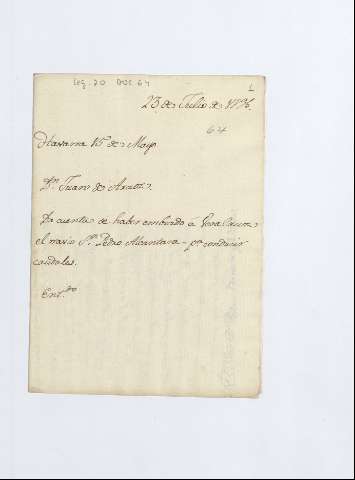 Leg. 20 Doc 64
1
23 de Julio de 1796.
64
Havana 15 de Mayo
Dn. Juan de Araoz.
Da cuenta de haber embiado à Vera Cruz
el navio Sn. Pedro Alcantara - pa. conducir
caudales.
Ent.do